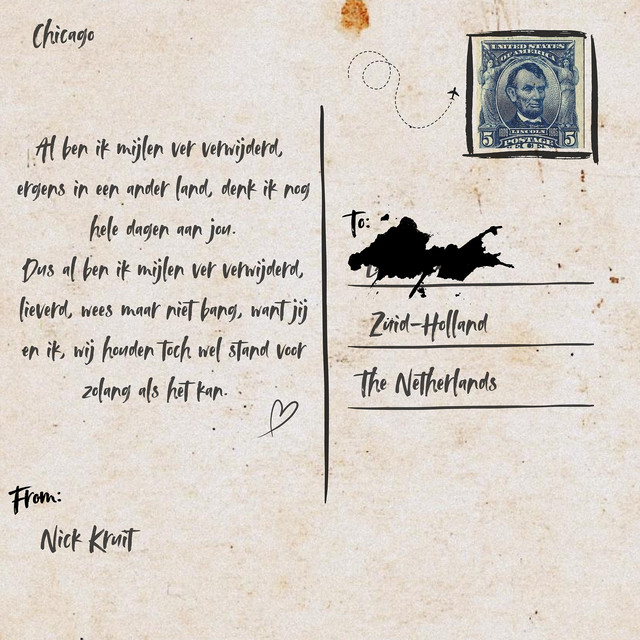 Chicago
UNITED STATES
OF AMERICA
5 LINCOLN 5
POSTAGE
Al ben ik mijlen ver verwijderd,
ergens in een ander land, denk ik nog
hele dagen aan jou.
Dus al ben ik mijlen ver verwijderd,
lieverd, wees maar niet bang, want jij
en ik, wij houden toch wel stand voor
zolang als het kan.
To:
Zuid-Holland
The Netherlands
From:
Nick Kruit